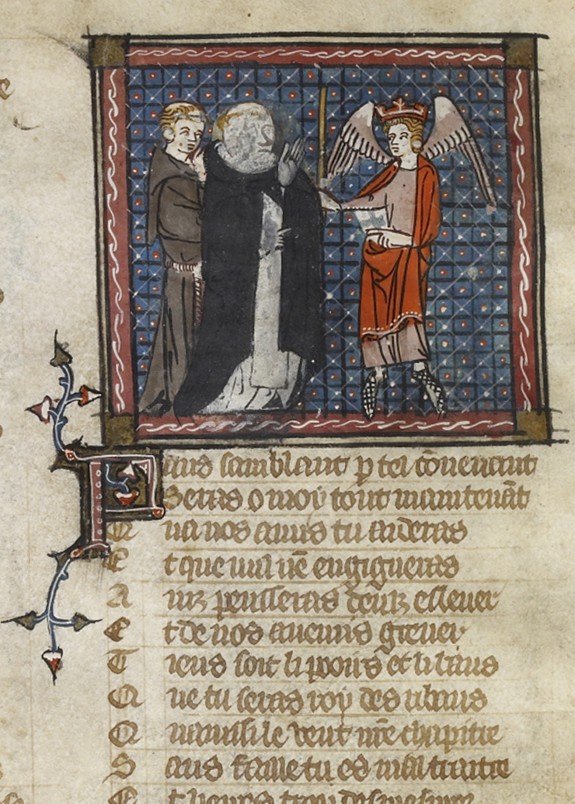 Faus samblant p tel couenant
Seras o moy tout maintenāt
Qua nos amis tu aideras
Et que nul nē engigneras
Ainz penseras deulz esleuer
Et de nos anemis greuer
Tiens soit li pooirs et li baus
Que tu seras roy des ribaus
Quainsi le veut nr̄e chapitre
Sans faille tu es mal traitre
Et lierres trop desmesurez